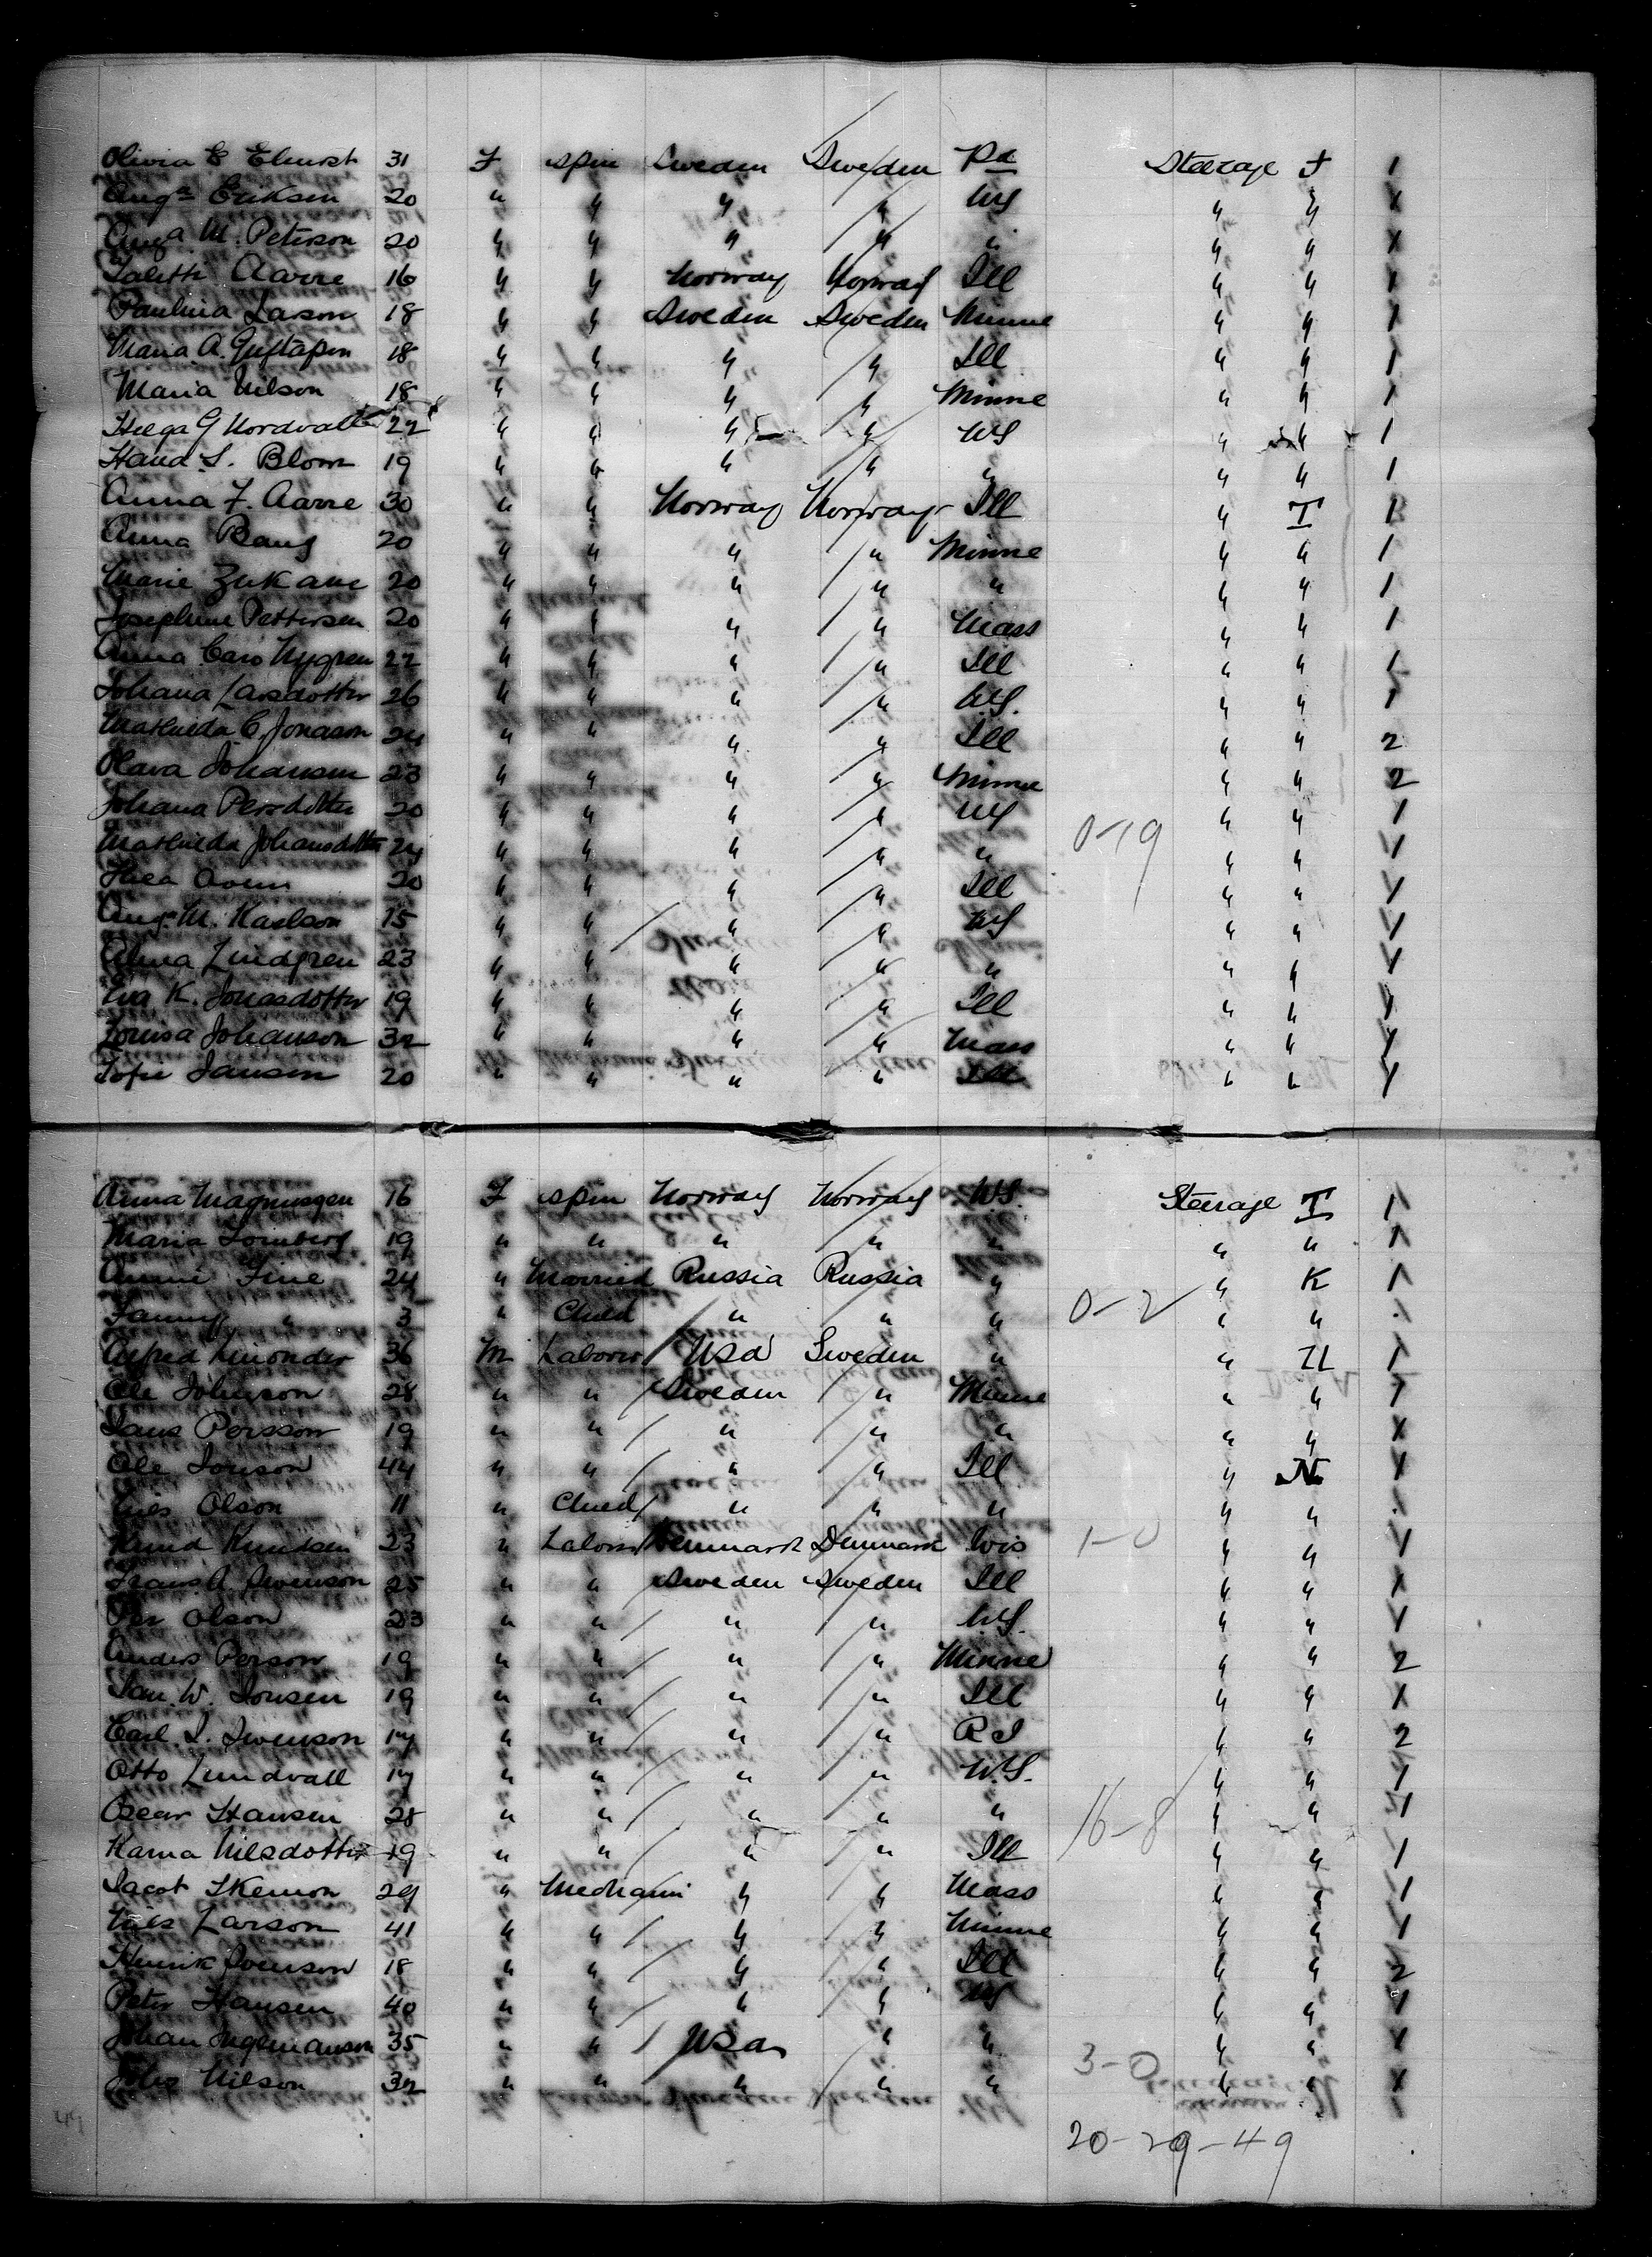 Olivia C Elmost 31 F spin Sweden Sweden Pa Steerage I 1
Aug.a Erikson 20 " " " " NY " " 1
Aug.a M. Peterson 20 " " " " " " " 1
Aarre 16 " " Norway Norway Ill " " 1
Paulina Larson 18 " " Sweden Sweden Minne " " 1
Maria A. Guftafson 18 " " " " Ill " " 1
Maria Nilson 18 " " " " Minne " " 1
Helga G Nordvall 22 " " " " NY " " 1
L. Blom 19 " " " " " " " 1
Anna F. Aarre 30 " " Norway Norway Ill " I 1
Anna Bang 20 " " " " Minne " " 1
Marie 20 " " " " " " " 1
Josephine Pettersen 20 " " " " Mass " " 1
Anna Caro Nygren 22 " " " " Ill " " 1
Johana Larsdotter 26 " " " " N.Y. " " 1
Mathilda C. Jonason 24 " " " " Ill " " 2
Olava Johansen 23 " " " " Minne " " 2
Johana Persdotter 20 " " " " NY " " 1
Mathilda Johansdotter 24 " " " " " 0-19 " " 1
Thea 20 " " " " Ill " " 1
Aug. M. Karlson 15 " " " " NY " " 1
Alma Lindgren 23 " " " " " " " 1
Eva K. Jonasdotter 19 " " " " Ill " " 1
Louisa Johanson 32 " " " " Mass " " 1
Sofie Jansen 20 " " " " Ill " " 1
Anna Magnussen 16 F spin Norway Norway NY. Steerage I 1
Maria Tornberg 19 " " " " " " " 1
Annie Fine 24 " Married Russia Russia " " K 1
Fanny " 3 " Child " " " 0-2 " "
Alfred 36 M Laborer USA Sweden " " 1
Ole Johnson 28 " " Sweden " Minne " " 1
Persson 19 " " " " " " " 1
Ole Jonson 44 " " " " Ill " N 1
Nils Olson 11 " Child " " " " "
Knud Knudsen 23 " Laborer Denmark Denmark Wis 1-0 " " 1
Frans A. Swenson 25 " " Sweden Sweden Ill " " 1
Per Olson 23 " " " " N.Y. " " 1
Anders Person 19 " " " " Minne " " 2
W. Jonsen 19 " " " " Ill " " 1
Carl I. Swenson 17 " " " " R I " " 2
Otto Lundvall 17 " " " " N.Y. " " 1
Oscar Hansen 28 " " " " " 16-8 " " 1
Karna Nilsdotter 19 " " " " Ill " " 1
Jacob 29 " Mechanic " " Mass " " 1
Nils Larson 41 " " " " Minne " " 1
Henrik 18 " " " " Ill " " 2
Peter Hansen 40 " " " " NY " " 1
Johan Ingemanson 35 " " USA " " " " 1
John Nilson 32 " " " " " 3-0 " " 1
20-29-49